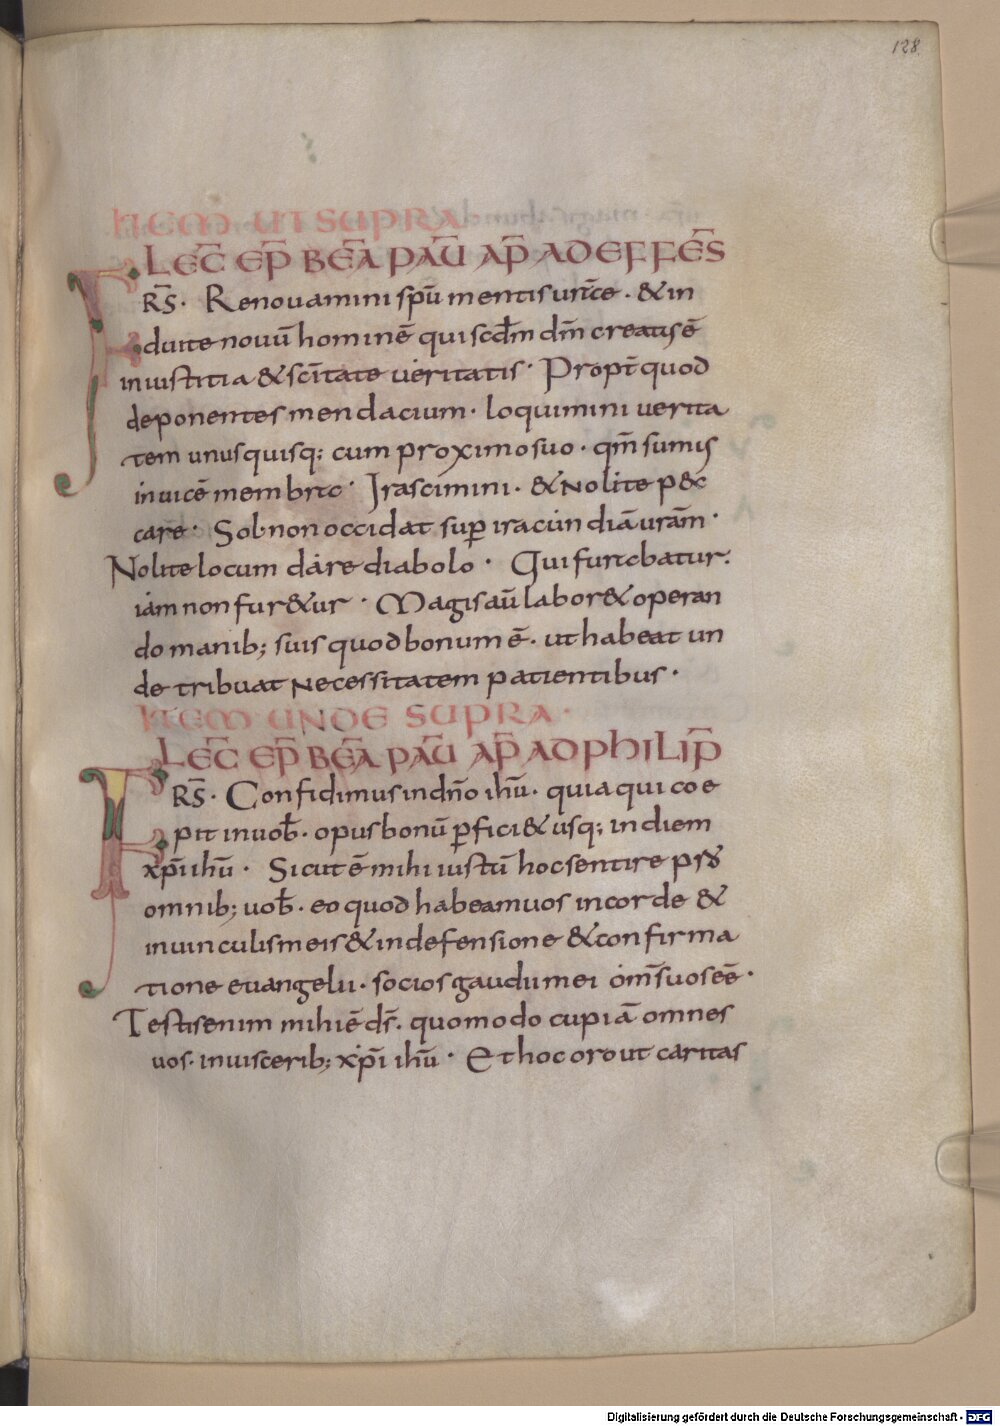 128
ITEM UT SUPRA
LEC̄ EP̄ BEĀ PAŪ AP̄ AD EFFĒS
FRS̄· Renouamini spū mentis urn̄ce· & in
duite nouū hominē qui scdm̄ dm̄ creatus ē
in iustitia & scītate ueritatis· Propt̄ quod
deponentes mendacium· loquimini uerita
tem unusquisq; cum proximo suo· qm̄ sumus
inuicē membra· Irascimini· & nolite pec
care· Sol non occidat super iracundiā urām·
Nolite locum dare diabolo· Qui furabatur·
iam non furetur· Magis aū labor& operan
do manib; suis quod bonum ē· ut habeat un
de tribuat necessitatem patientibus·
ITEM UNDE SUPRA·
LEC̄ EP̄ BEĀ PAŪ AP̄ AD PHILIP̄
FRS̄· Confidimus in dn̄o ihū· quia qui coe
pit in uob̄· opus bonū ꝑfici& usq; in diem
xp̄i ihū· Sicut ē mihi iustū hoc sentire pro
omnib; uob̄· eo quod habeam uos in corde &
in uinculis meis & in defensione & confirma
tione euangelii· socios gaudii mei om̄s uos eē·
Testis enim mihi ē ds̄· quomodo cupiā omnes
uos· in uiscerib; xp̄i ihū· Et hoc oro ut caritas
Digitalisierung gefördert durch die Deutsche Forschungsgemeinschaft - DFG